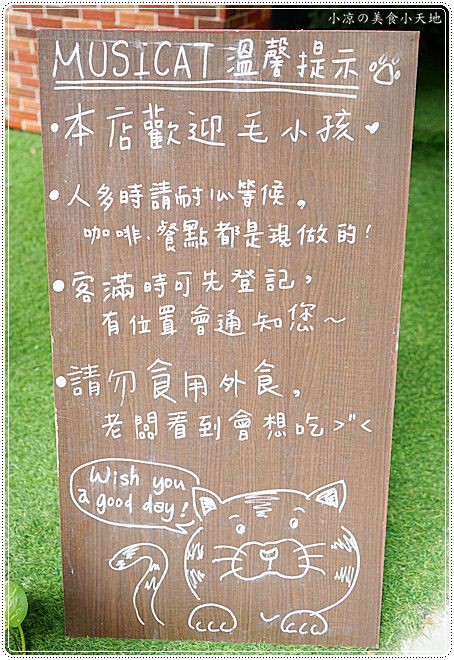 小凉の美食小天地
MUSICAT 溫馨提示
•本店歡迎毛小孩♥
•人多時請耐心等候，
咖啡、餐點都是現做的!
•客滿時可先登記，
有位置會通知您～
•請勿食用外食，
老闆看到會想吃>"<
Wish you
a good day!